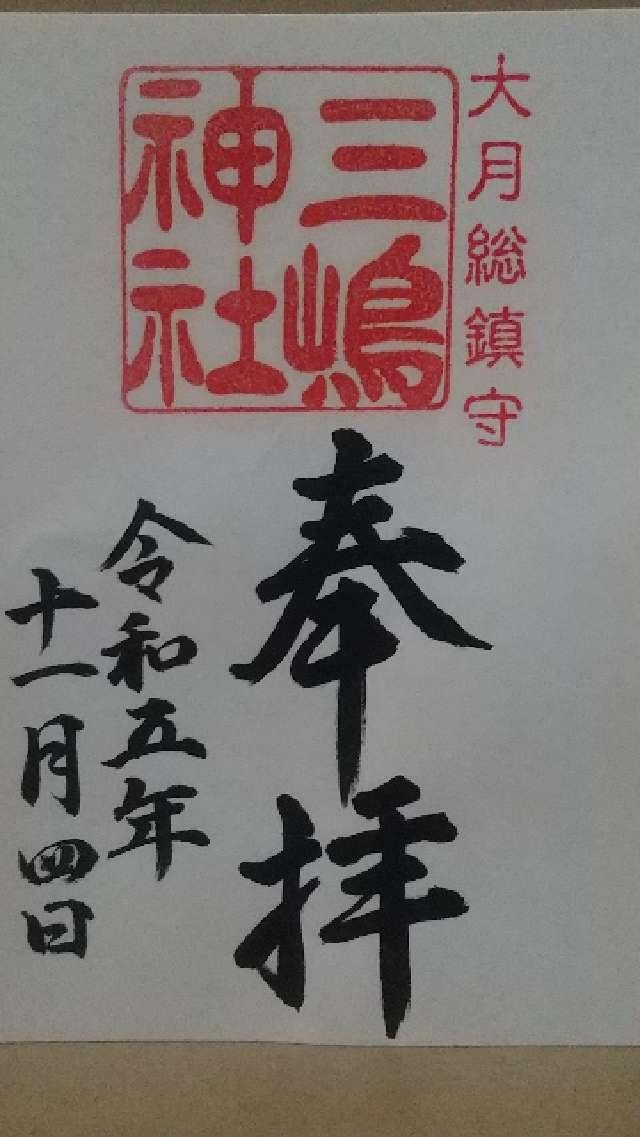 大月総鎮守
三嶋
神社
奉拝
令和五年
十一月四日